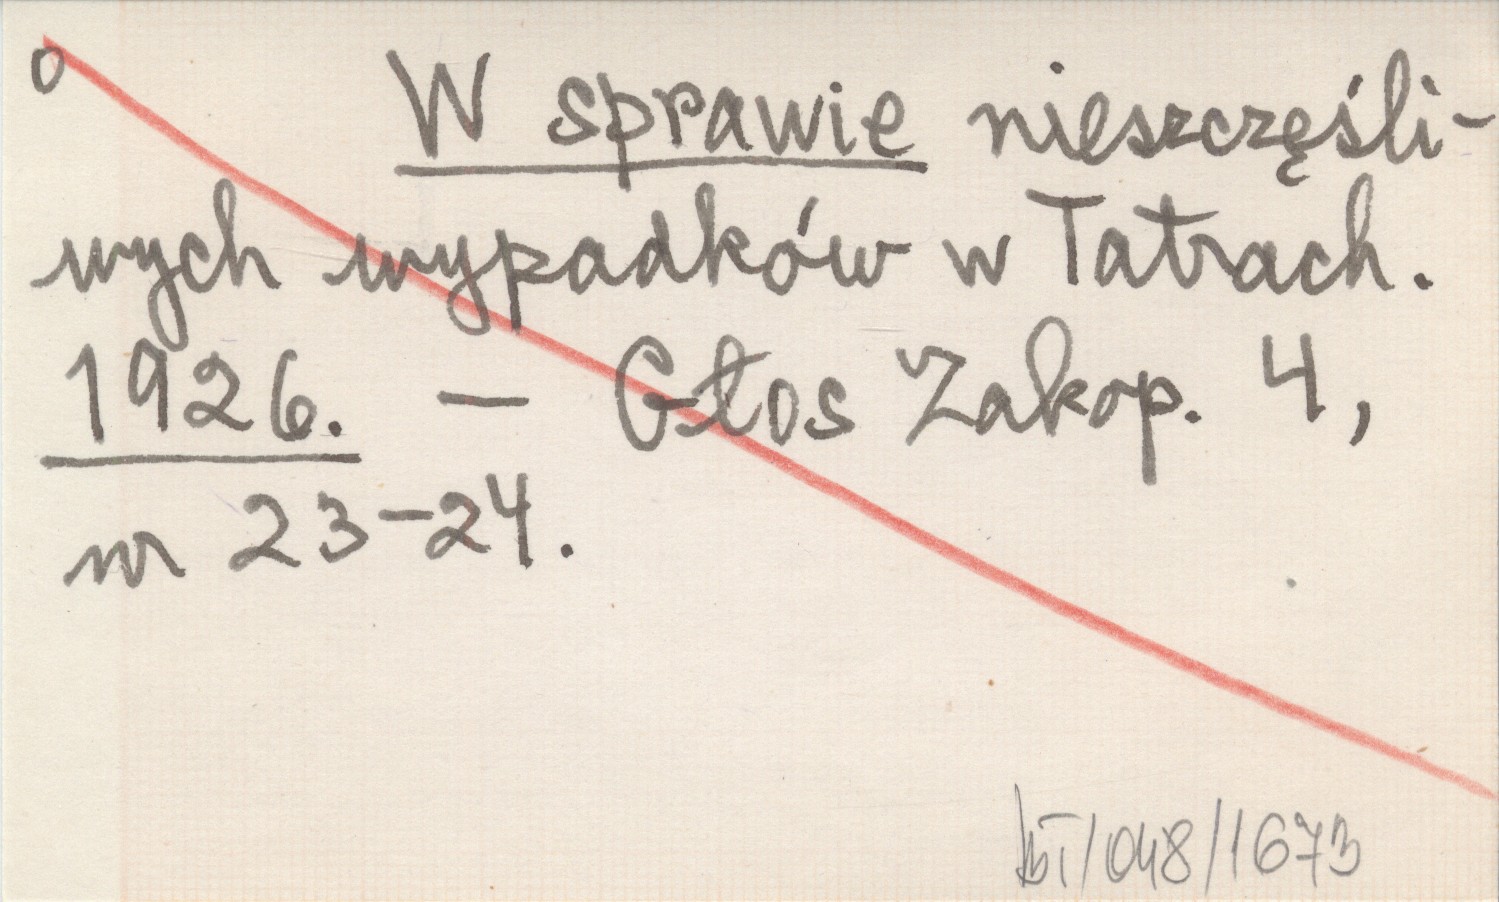 o
W sprawie nieszczęśli-
wych wypadków w Tatrach.
1926. — Głos Zakop. 4,
nr 23-24.
/048/1673